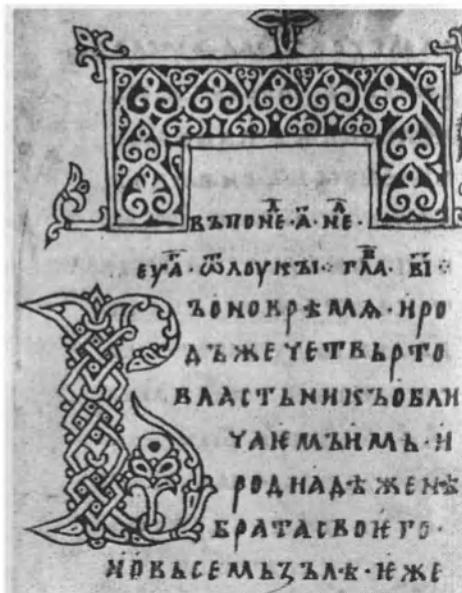 въпонⷣе·а҃·нⷣе·
еуⷢа҃·ѿлоукꙑ·глⷡа·в҃і҃·
Въоноврѣмѧ·иро
дъжечетвьрто
властьникъобли
чаѥмъимь·и
родиадѣженѣ
братасвоѥго·
иовьсемьзълѣ·ѥже